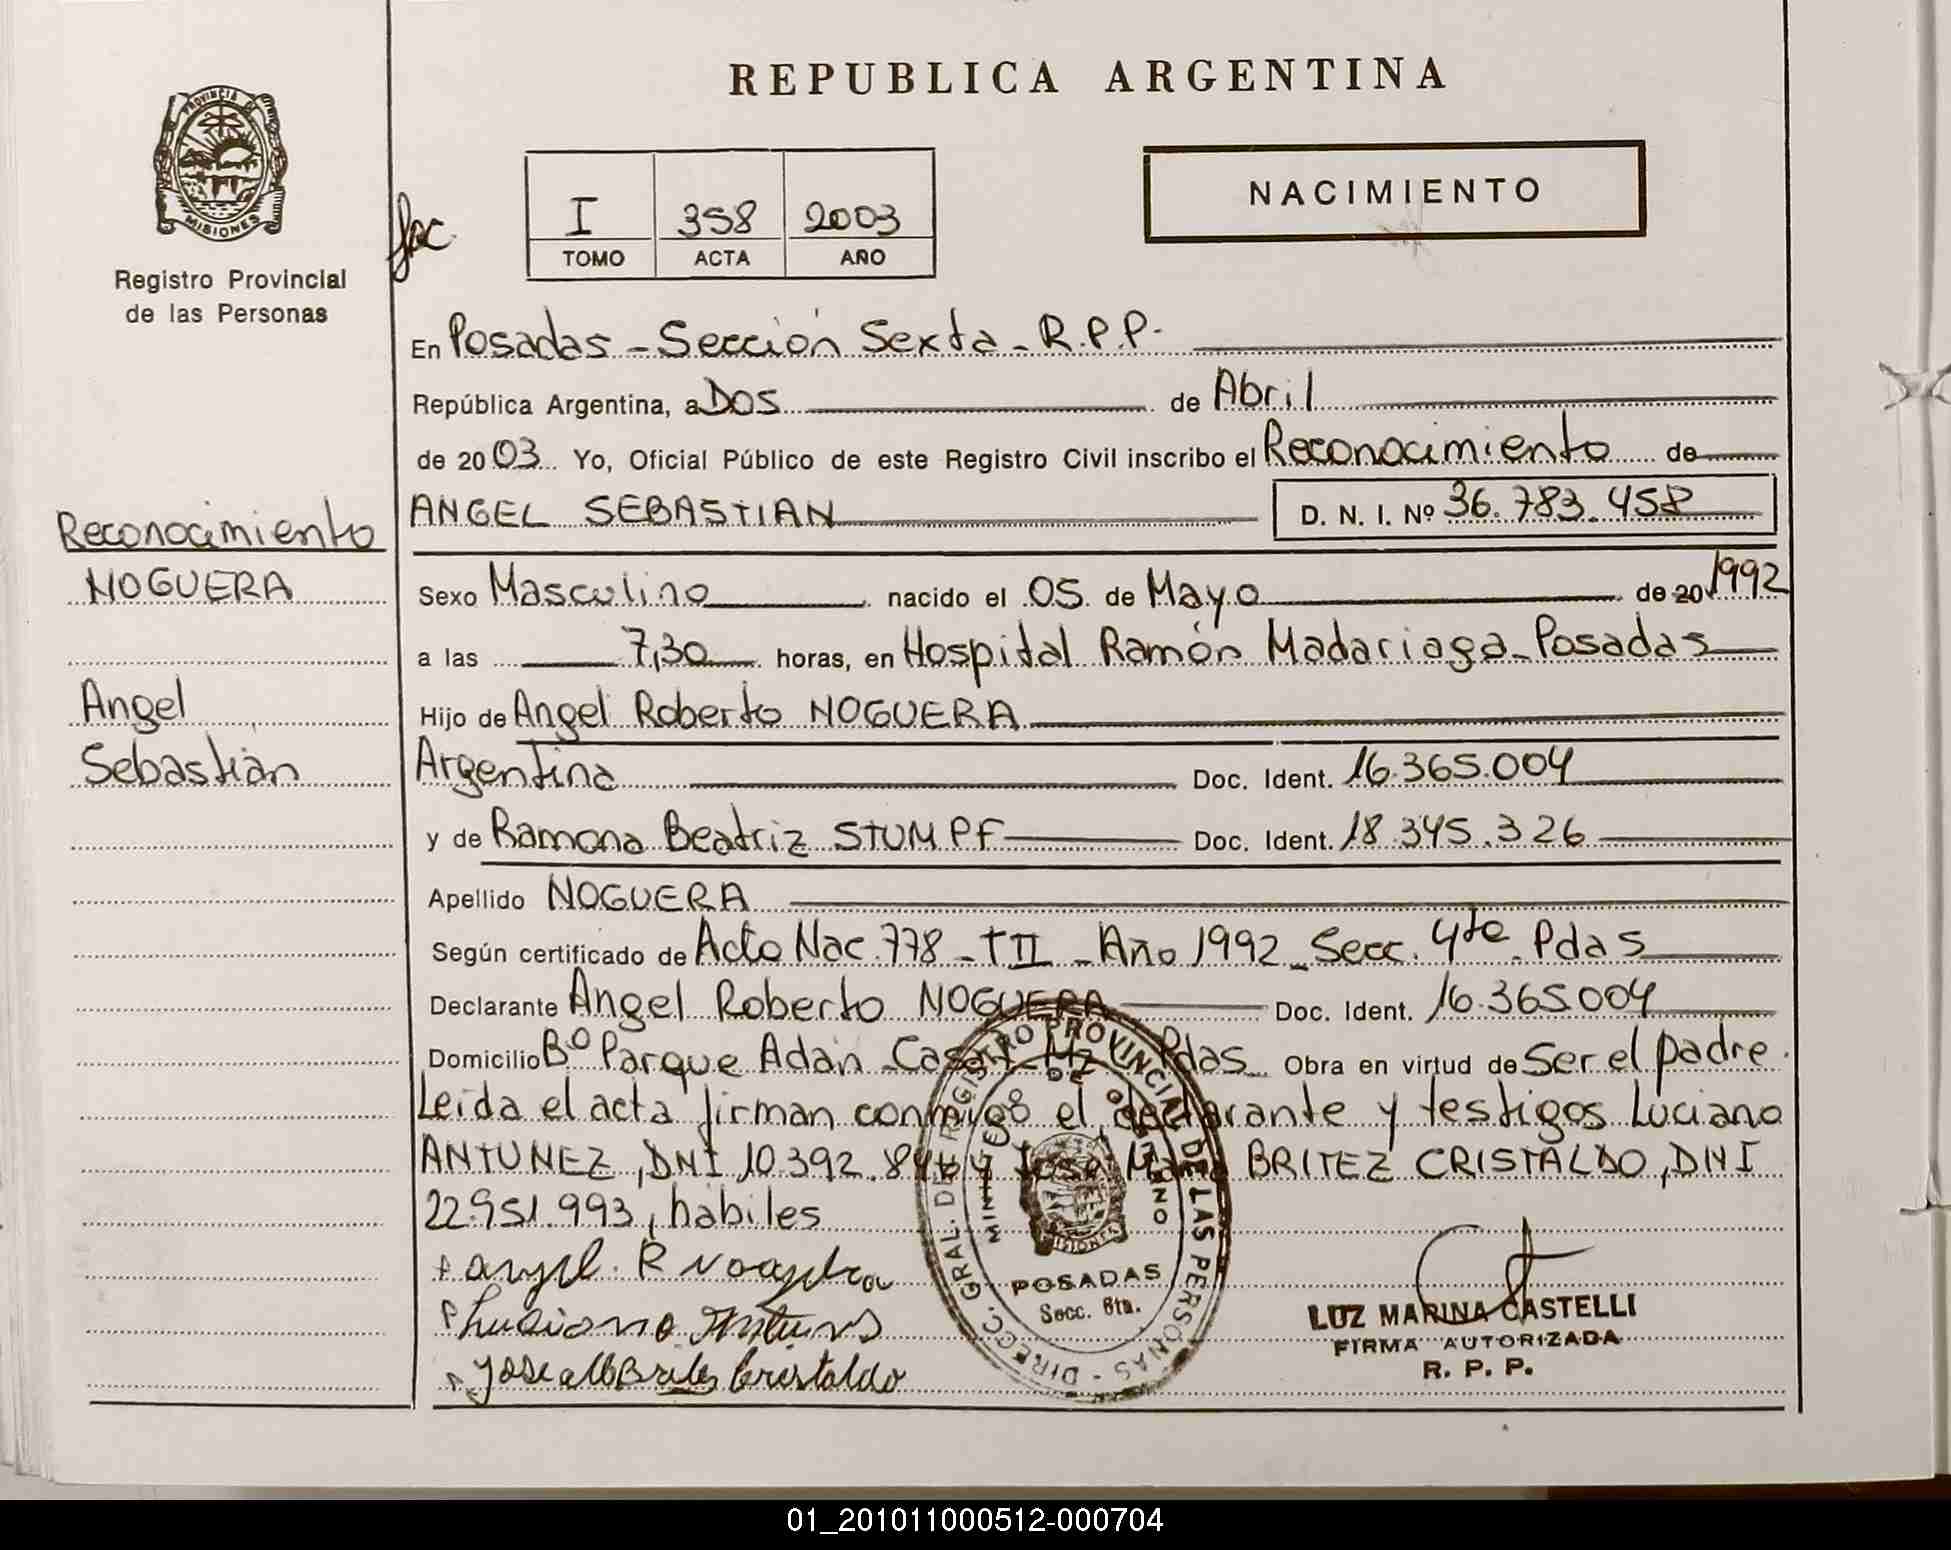 REPUBLICA ARGENTINA
PROVINCIA DE
MISIONES
Registro Provincial
de las Personas
I 358 2003
TOMO ACTA AÑO
NACIMIENTO
En Posadas - Sección Sexta - R.P.P.
República Argentina, a Dos de Abril
de 2003 Yo, Oficial Público de este Registro Civil inscribo el Reconocimiento de
ANGEL SEBASTIAN D. N. I. Nº 36.783.458
Reconocimiento
NOGUERA
Angel
Sebastián
Sexo Masculino nacido el 05 de Mayo de 20 1992
a las 7,30 horas, en Hospital Ramón Madariaga - Posadas
Hijo de Angel Roberto NOGUERA
Argentina Doc. Ident. 16.365.004
y de Ramona Beatriz STUMPF Doc. Ident. 18.345.326
Apellido NOGUERA
Según certificado de Acta Nac. 778 - T II - Año 1992 - Secc. 4ta - Pdas
Declarante Angel Roberto NOGUERA Doc. Ident. 16.365004
Domicilio Bº Parque Adán - Pdas Obra en virtud de Ser el padre.
Leída el acta firman conmigo el declarante y testigos Luciano
ANTUNEZ, DNI 10.392. y José BRITEZ CRISTALDO, DNI
22.951.993, hábiles
DIRECC. GRAL. DE REGISTRO PROVINCIAL DE LAS PERSONAS
MINISTERIO DE GOBIERNO
MISIONES
POSADAS
Secc. 6ta.
LUZ MARINA CASTELLI
FIRMA AUTORIZADA
R. P. P.
01_201011000512-000704